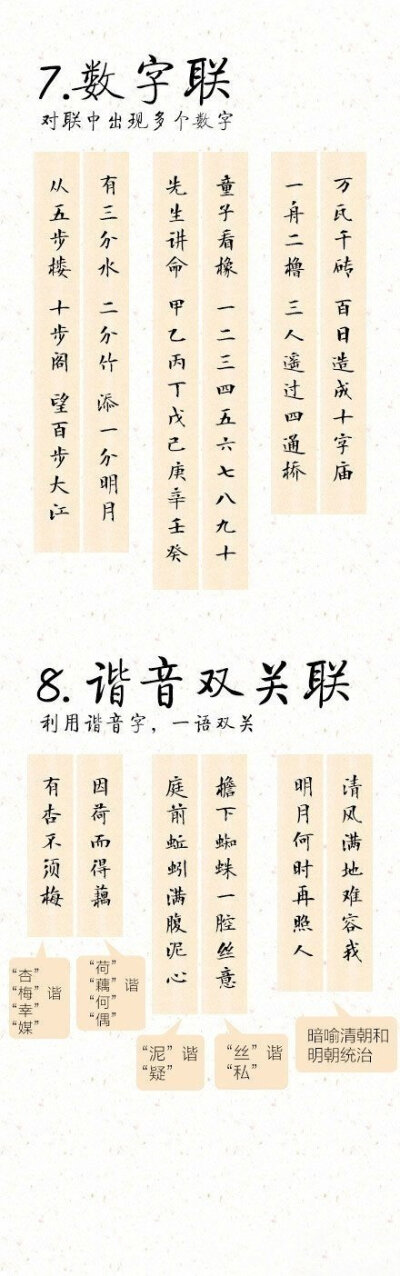 7.数字联
对联中出现多个数字
万氏千砖 百日造成十字庙
一舟二橹 三人遥过四通桥
童子看橡 一二三四五六七八九十
先生讲命 甲乙丙丁戊己庚辛壬癸
有三分水 二分竹 添一分明月
从五步楼 十步阁 望百步大江
8.谐音双关联
利用谐音字，一语双关
清风满地难容我
明月何时再照人
檐下蜘蛛一腔丝意
庭前蚯蚓满腹泥心
因荷而得藕
有杏不须梅
“杏”
“梅” 谐
“幸”
“媒”
“荷”
“藕” 谐
“何”
“偶”
“泥” 谐
“疑”
“丝” 谐
“私”
暗喻清朝和
明朝统治